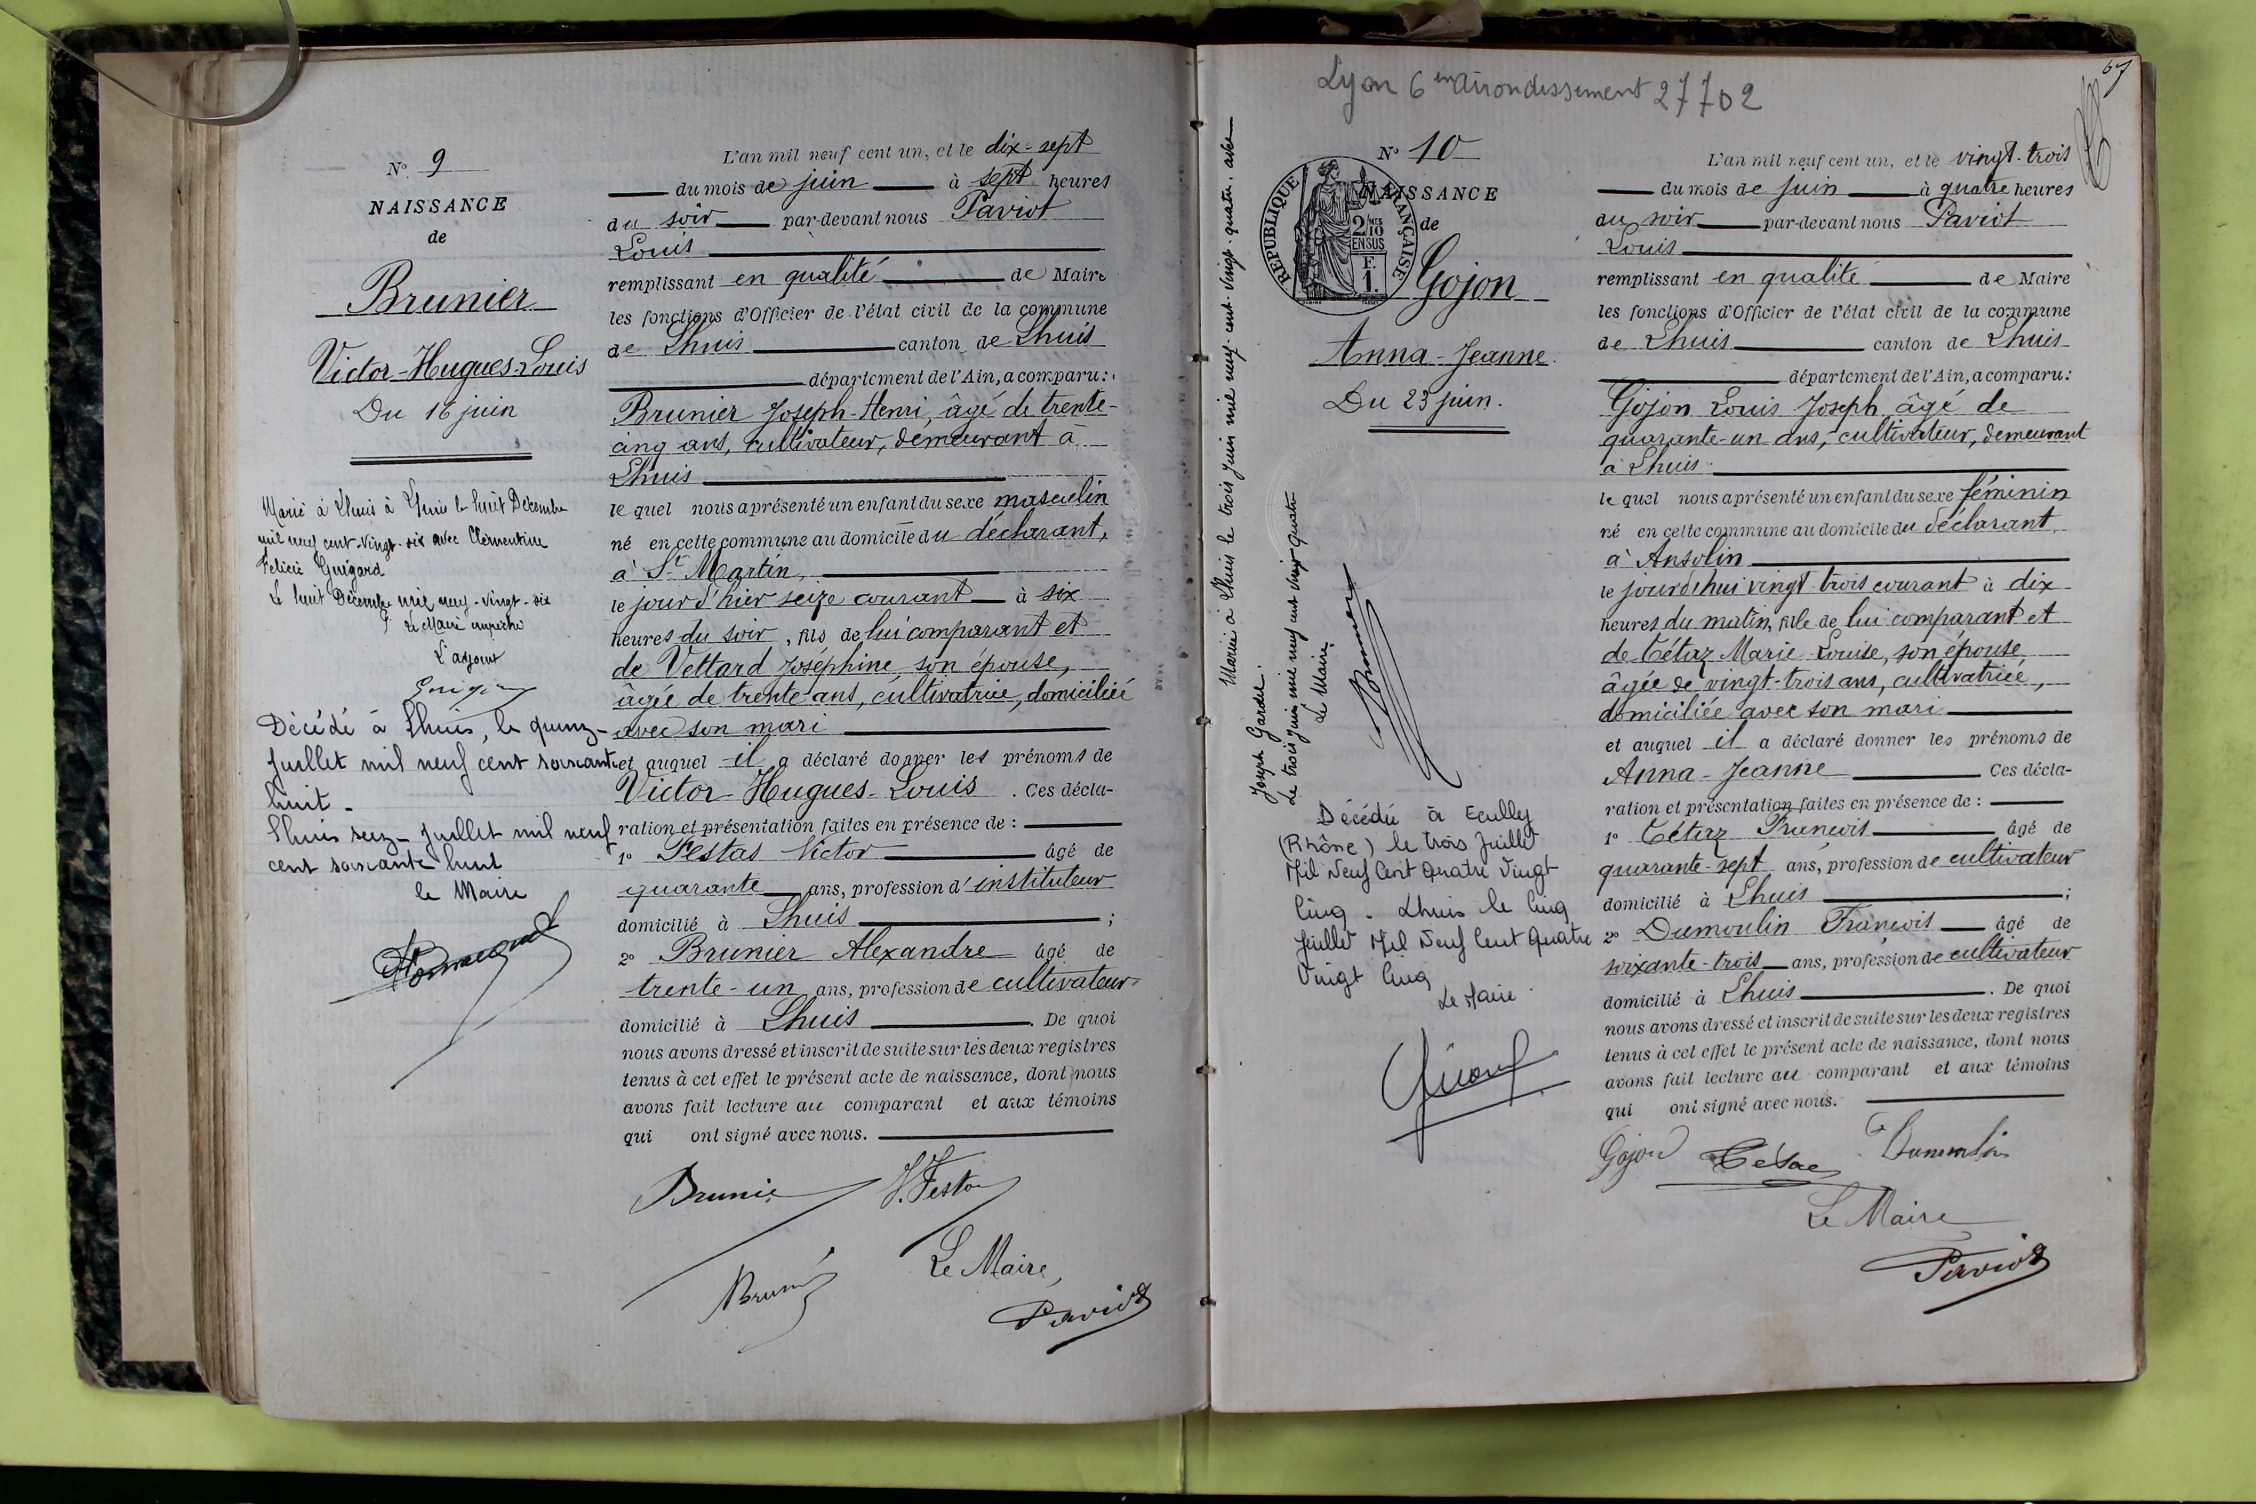 N° 9
NAISSANCE
de
Brunier
Victor-Hugues-Louis
Du 16 juin
Marié à Lhuis à Lhuis le huit Décembre
mil neuf cent-vingt-six avec Clémentine
Félicie Guigard
Le huit Décembre mil neuf-vingt-six
Le Maire empêché
L'adjoint
Décédé à Lhuis, le quinze
juillet mil neuf cent soixante
huit -
Lhuis seize juillet mil neuf
cent soixante huit
le Maire
L'an mil neuf cent un, et le dix-sept
du mois de juin à sept heures
du soir par-devant nous Paviot
Louis
remplissant en qualité de Maire
les fonctions d'Officier de l'état civil de la commune
de Lhuis canton de Lhuis
département de l'Ain, a comparu:
Brunier Joseph-Henri, âgé de trente-
cinq ans, cultivateur, demeurant à
Lhuis
le quel nous a présenté un enfant du sexe masculin
né en cette commune au domicile du déclarant,
à St Martin,
le jour d'hier seize courant à six
heures du soir, fils de lui comparant et
de Vettard Joséphine, son épouse,
âgée de trente ans, cultivatrice, domiciliée
avec son mari
et auquel il a déclaré donner les prénoms de
Victor-Hugues-Louis. Ces décla-
ration et présentation faites en présence de :
1° Festas Victor âgé de
quarante ans, profession d'instituteur
domicilié à Lhuis ;
2° Brunier Alexandre âgé de
trente-un ans, profession de cultivateur
domicilié à Lhuis. De quoi
nous avons dressé et inscrit de suite sur les deux registres
tenus à cet effet le présent acte de naissance, dont nous
avons fait lecture au comparant et aux témoins
qui ont signé avec nous.
Brunier V. Festas
Le Maire,
Brunier
Paviot
Lyon 6em arrondissement 27702
67
N° 10
REPUBLIQUE FRANÇAISE
2/10 EN SUS
F. 1.
NAISSANCE
de
Gojon
Anna-Jeanne
Du 23 juin.
Mariée à Lhuis le trois juin mil neuf-cent-vingt-quatre, avec
Joseph Gardue.
Le trois juin mil neuf cent vingt quatre
Le Maire
Décédée à Ecully
(Rhône) le trois Juillet
Mil Neuf Cent Quatre Vingt
Cinq. Lhuis le Cinq
Juillet Mil Neuf Cent Quatre
Vingt Cinq
Le Maire
L'an mil neuf cent un, et le vingt-trois
du mois de juin à quatre heures
du soir par-devant nous Paviot
Louis
remplissant en qualité de Maire
les fonctions d'Officier de l'état civil de la commune
de Lhuis canton de Lhuis
département de l'Ain, a comparu:
Gojon Louis Joseph, âgé de
quarante-un ans, cultivateur, demeurant
à Lhuis
le quel nous a présenté un enfant du sexe féminin
né en cette commune au domicile du déclarant,
à Ansolin
le jourd'hui vingt-trois courant à dix
heures du matin, fille de lui comparant et
de Tétaz Marie-Louise, son épouse
âgée de vingt-trois ans, cultivatrice,
domiciliée avec son mari
et auquel il a déclaré donner les prénoms de
Anna-Jeanne Ces décla-
ration et présentation faites en présence de :
1° Tétaz François âgé de
quarante-sept ans, profession de cultivateur
domicilié à Lhuis ;
2° Dumoulin François âgé de
soixante-trois ans, profession de cultivateur
domicilié à Lhuis. De quoi
nous avons dressé et inscrit de suite sur les deux registres
tenus à cet effet le présent acte de naissance, dont nous
avons fait lecture au comparant et aux témoins
qui ont signé avec nous.
Gojon Tétaz Dumoulin
Le Maire
Paviot